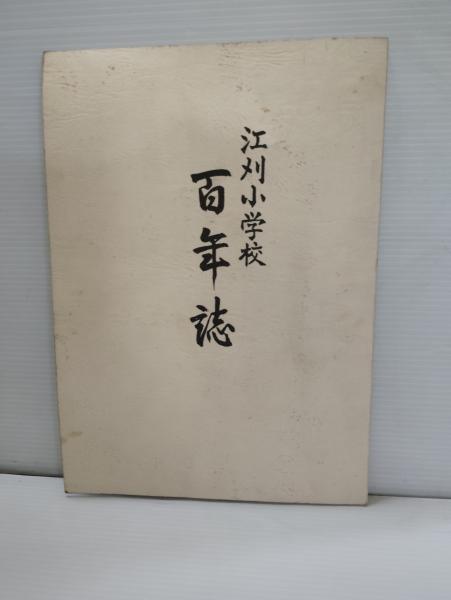 江刈小学校
百年誌